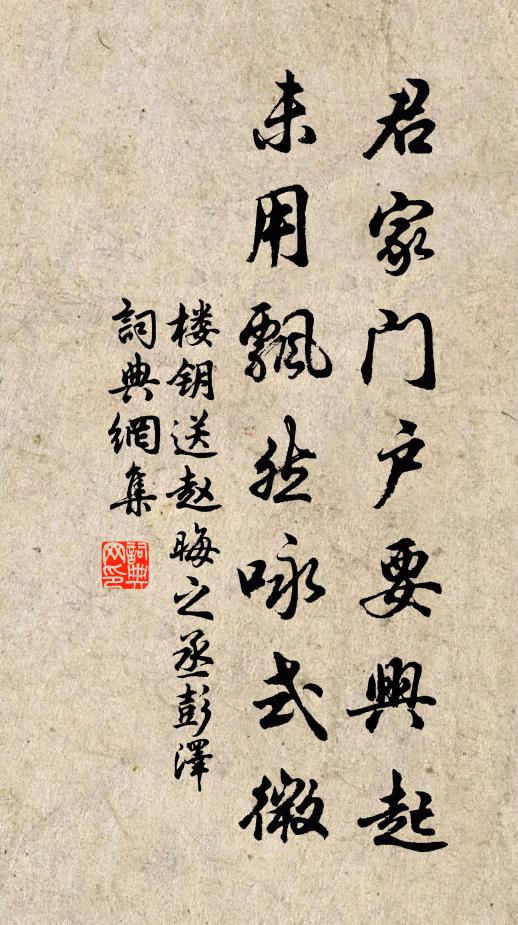 君家门户要興起
未用飄然咏式微
楼钥送赵晦之丞彭澤
詞典網集
詞典网印